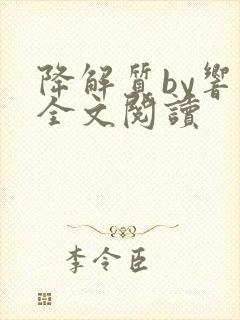 降解質by響
全文閱讀
李令臣